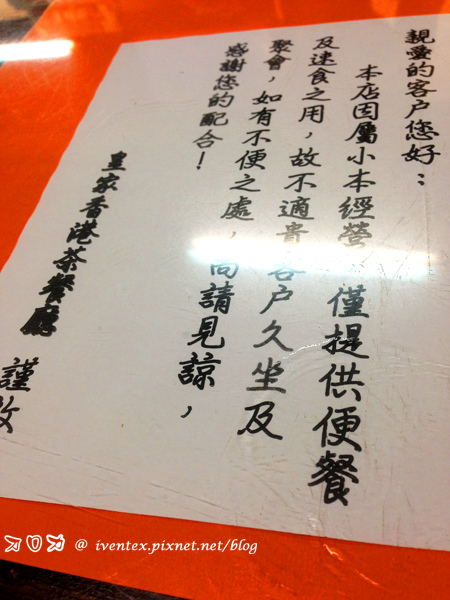 親愛的客户您好：
本店因屬小本經營，僅提供便餐
及速食之用，故不適貴客户久坐及
聚會，如有不便之處，尚請見諒，
感謝您的配合！
皇家香港茶餐廳 謹啟
@ iventex.pixnet.net/blog